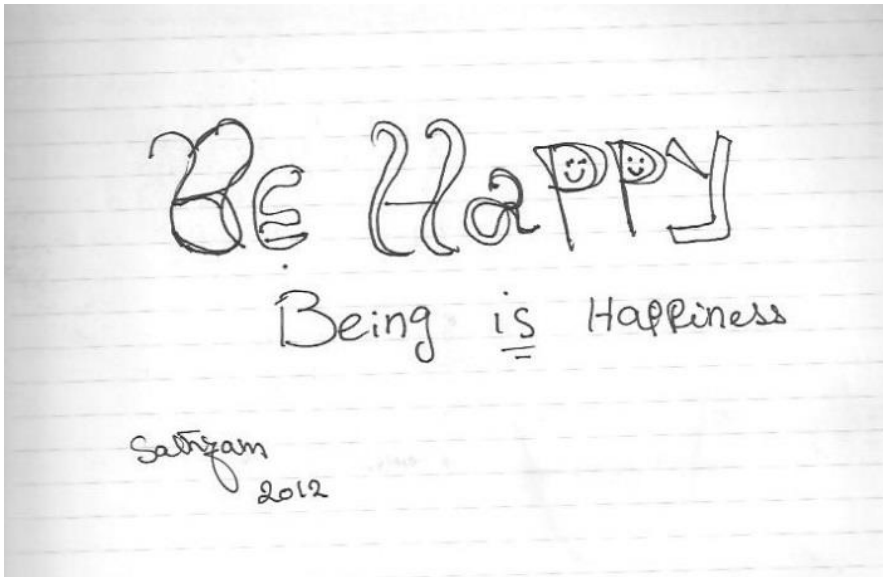 Be Happy
Being is Happiness
Sathyam
2012